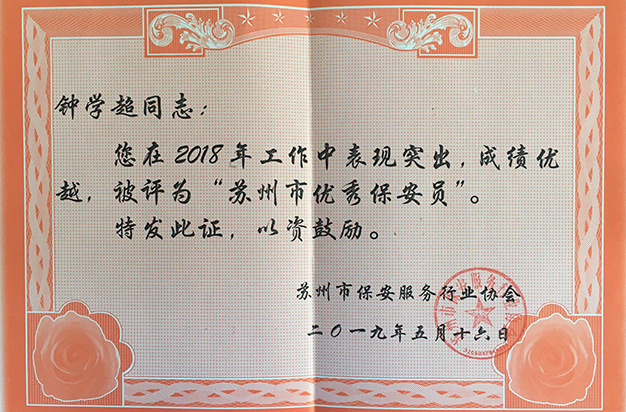 钟学超同志：
您在2018年工作中表现突出，成绩优
越，被评为“苏州市优秀保安员”。
特发此证，以资鼓励。
苏州市保安服务行业协会
二〇一九年五月十六日